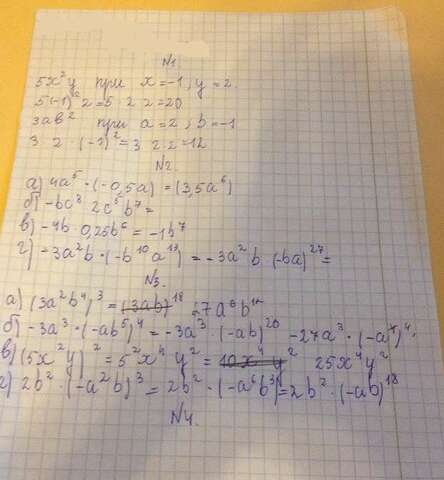 №1
5x²y при x=-1, y=2.
5(-1)² 2=5 2 2=20
3ab² при a=2, b=-1
3 2 · (-1)²=3 2 2=12
№2.
а) 4a⁵ · (-0,5a) = (3,5a⁶)
б) -bc³ 2c⁵b⁷=
в) -4b 0,25b⁶ = -1b⁷
г) -3a²b · (-b¹⁰a¹³) = -3a²b · (-ba)²⁷=
№3.
а) (3a²b⁴)³ = (3ab)¹⁸ 27a⁶b¹²
б) -3a³ · (-ab⁵)⁴ = -3a³ · (-ab)²⁰ -27a³ · (-a)⁴
в) (5x²y)² = 5²x⁴y² = 10x⁴y² 25x⁴y²
г) 2b² · (-a²b)³ = 2b² · (-a⁶b³) = 2b² · (-ab)¹⁸
№4.